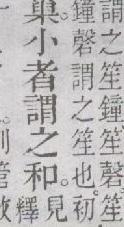 謂之笙鐘笙磬笙
鐘磬謂之笙也。初
巢。小者謂之和。見
釋